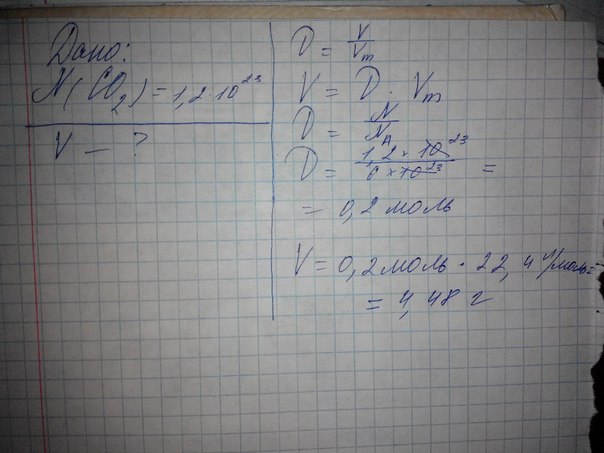 Дано:
N(CO₂) = 1,2·10²³
V — ?
D = V/Vm
V = D · Vm
D = N/NA
D = 1,2 × 10²³ / 6 × 10²³ =
= 0,2 моль
V = 0,2 моль · 22,4 л/моль =
= 4,48 г